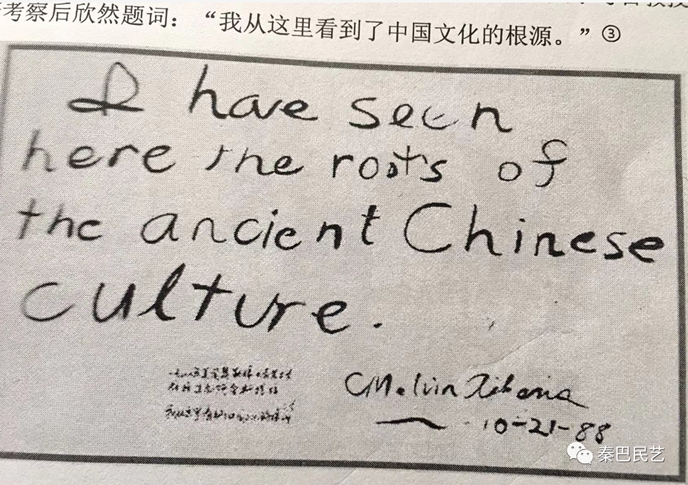 考察后欣然题词：“我从这里看到了中国文化的根源。”③
I have seen
here the roots of
the ancient Chinese
culture.
Melvin
10-21-88
秦巴民艺